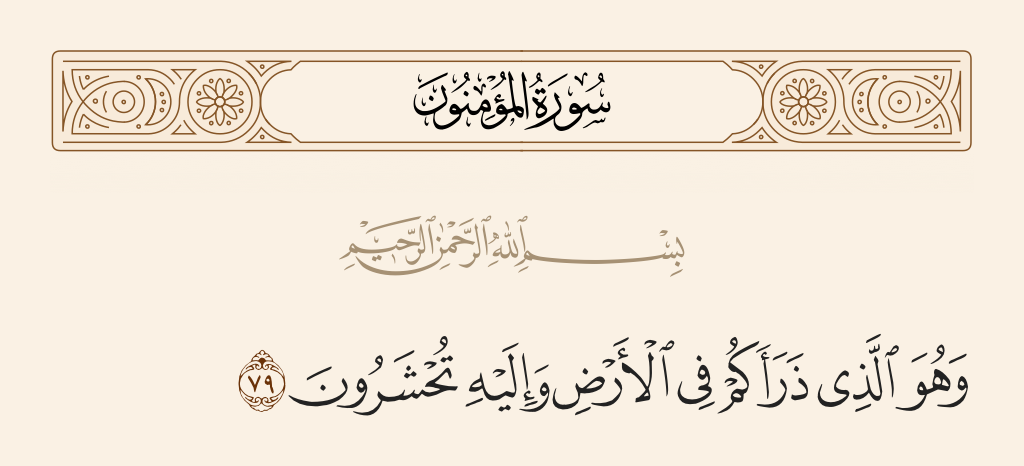 سُورَةُ المُؤْمِنُونَ
بِسْمِ ٱللَّهِ ٱلرَّحْمَٰنِ ٱلرَّحِيمِ
وَهُوَ ٱلَّذِى ذَرَأَكُمْ فِى ٱلْأَرْضِ وَإِلَيْهِ تُحْشَرُونَ ٧٩